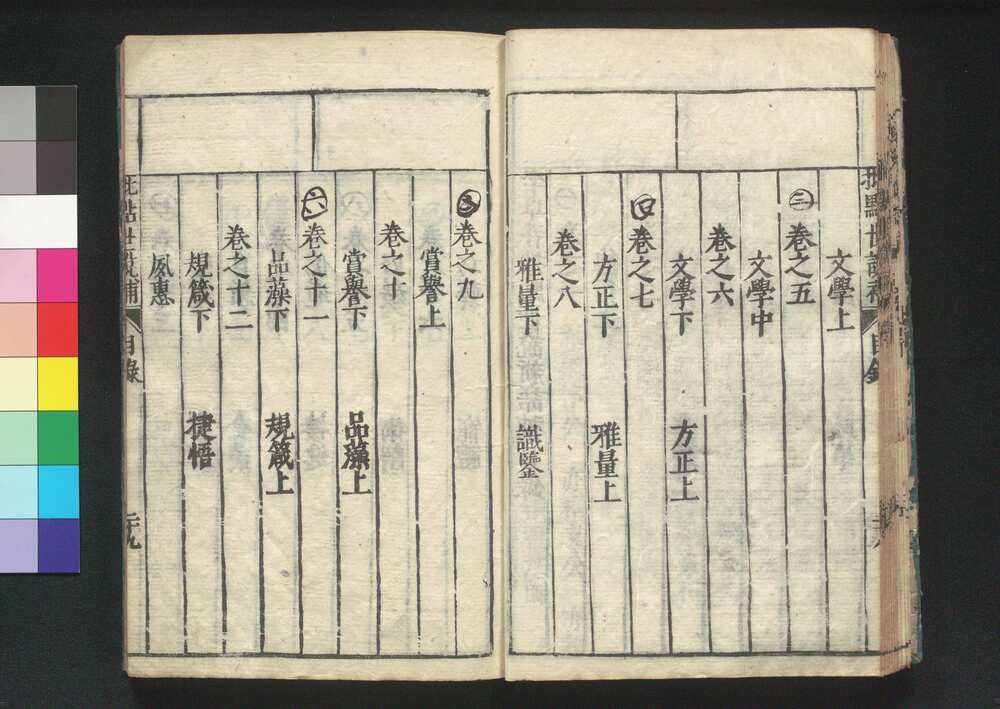 批點世說補 目錄
文學上
㊂ 卷之五
文學中
卷之六
文學下 方正上
㊃ 卷之七
方正下 雅量上
卷之八
雅量下 識鑒
卷之九
賞譽上
卷之十
賞譽下 品藻上
㊅ 卷之十一
品藻下 規箴上
卷之十二
規箴下 捷悟
夙惠
批點世說補 目錄 二十九